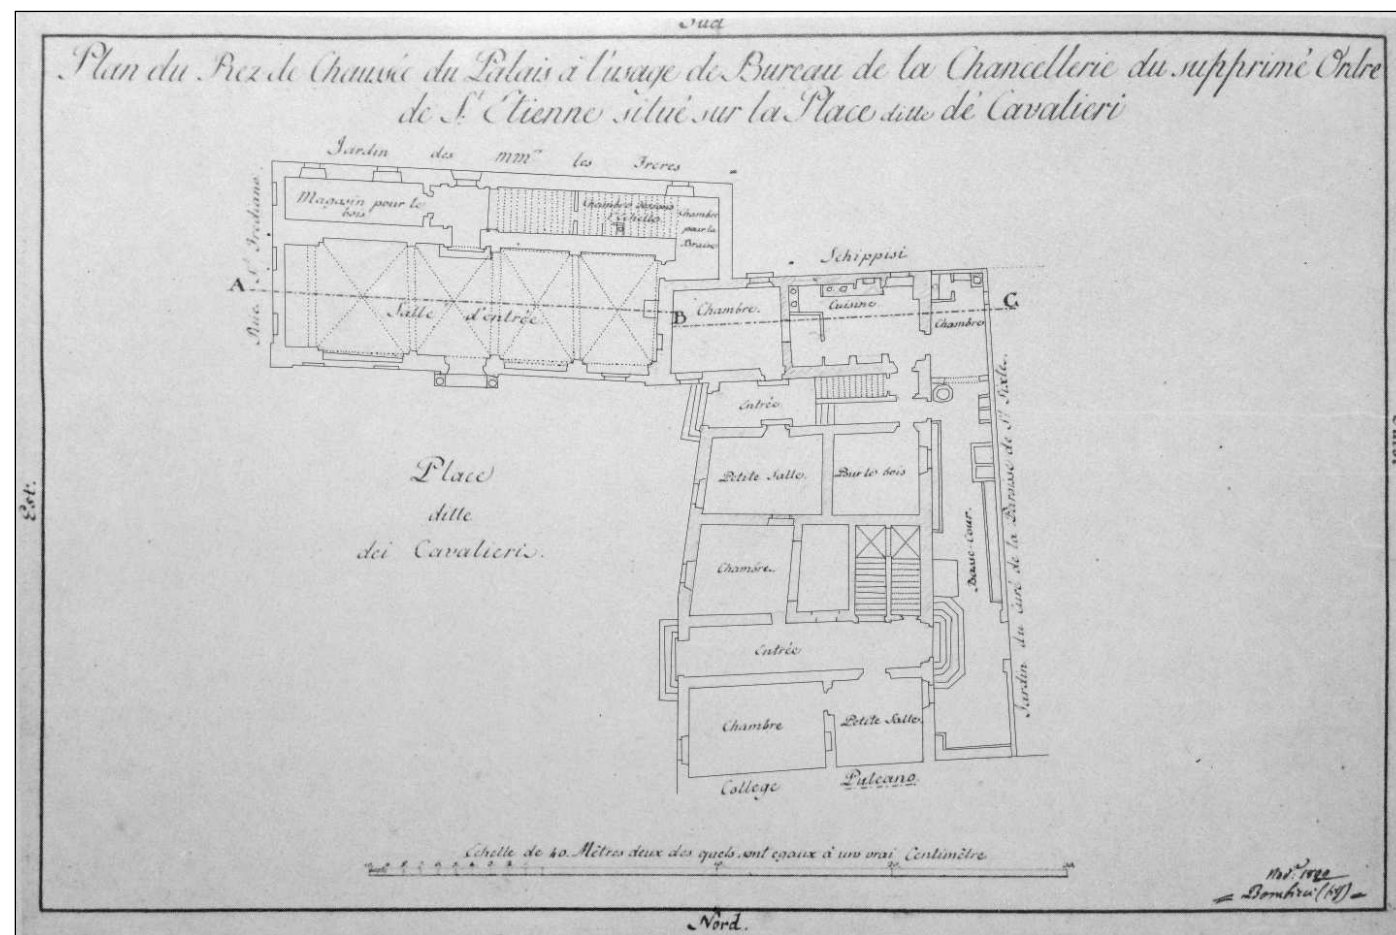 Sud
Plan du Rez de Chaussée du Palais à l'usage de Bureau de la Chancellerie du supprimé Ordre
de St. Etienne situé sur la Place ditte dé Cavalieri
Jardin des mm.rs les Freres
Rue St. Frediano.
Magasin pour le
bois
Chambre dessous
l'Echelle
Chambre
pour la
Braise
Schippisi
A
Salle d'entrée
B
Chambre.
Cuisine
C.
Chambre
Entrée
Place
ditte
dei Cavalieri.
Petite Salle.
Bur le bois
Basse-Cour.
Jardin du Curé de la Paroisse de St. Sixte.
Chambre.
Entrée
Chambre
Petite Salle.
College Puteano.
Est.
Echelle de 40. Mêtres deux des quels sont egaux à un vrai Centimêtre
Nord.